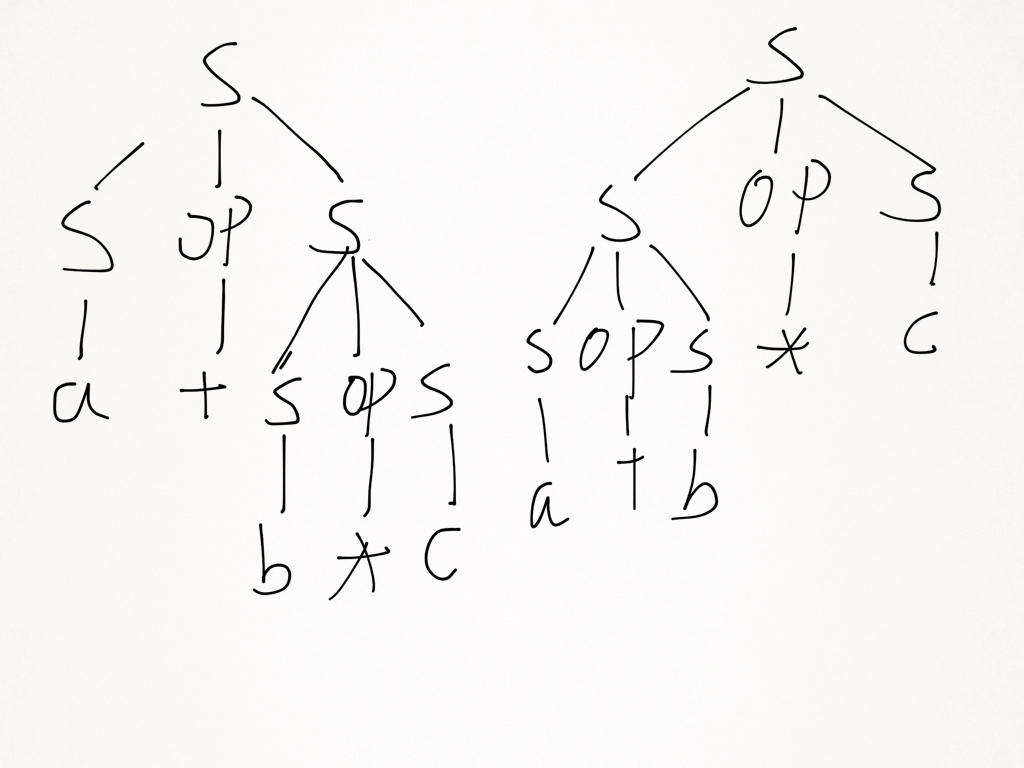 S
S OP S
a + S OP S
b * C
S
S OP S
S OP S * C
a + b